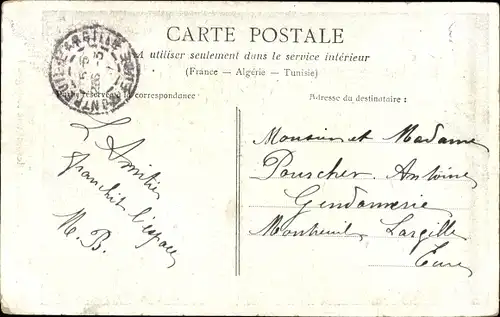 CARTE POSTALE
A utiliser seulement dans le service intérieur
(France — Algérie — Tunisie)
Partie réservée à la correspondance
Adresse du destinataire :
MONTREUIL-L'ARGILLE
EURE
L'Amitié
franchit l'espace
M. B.
Monsieur et Madame
Pouscher Antoine
Gendarmerie
Montreuil Largille
Eure